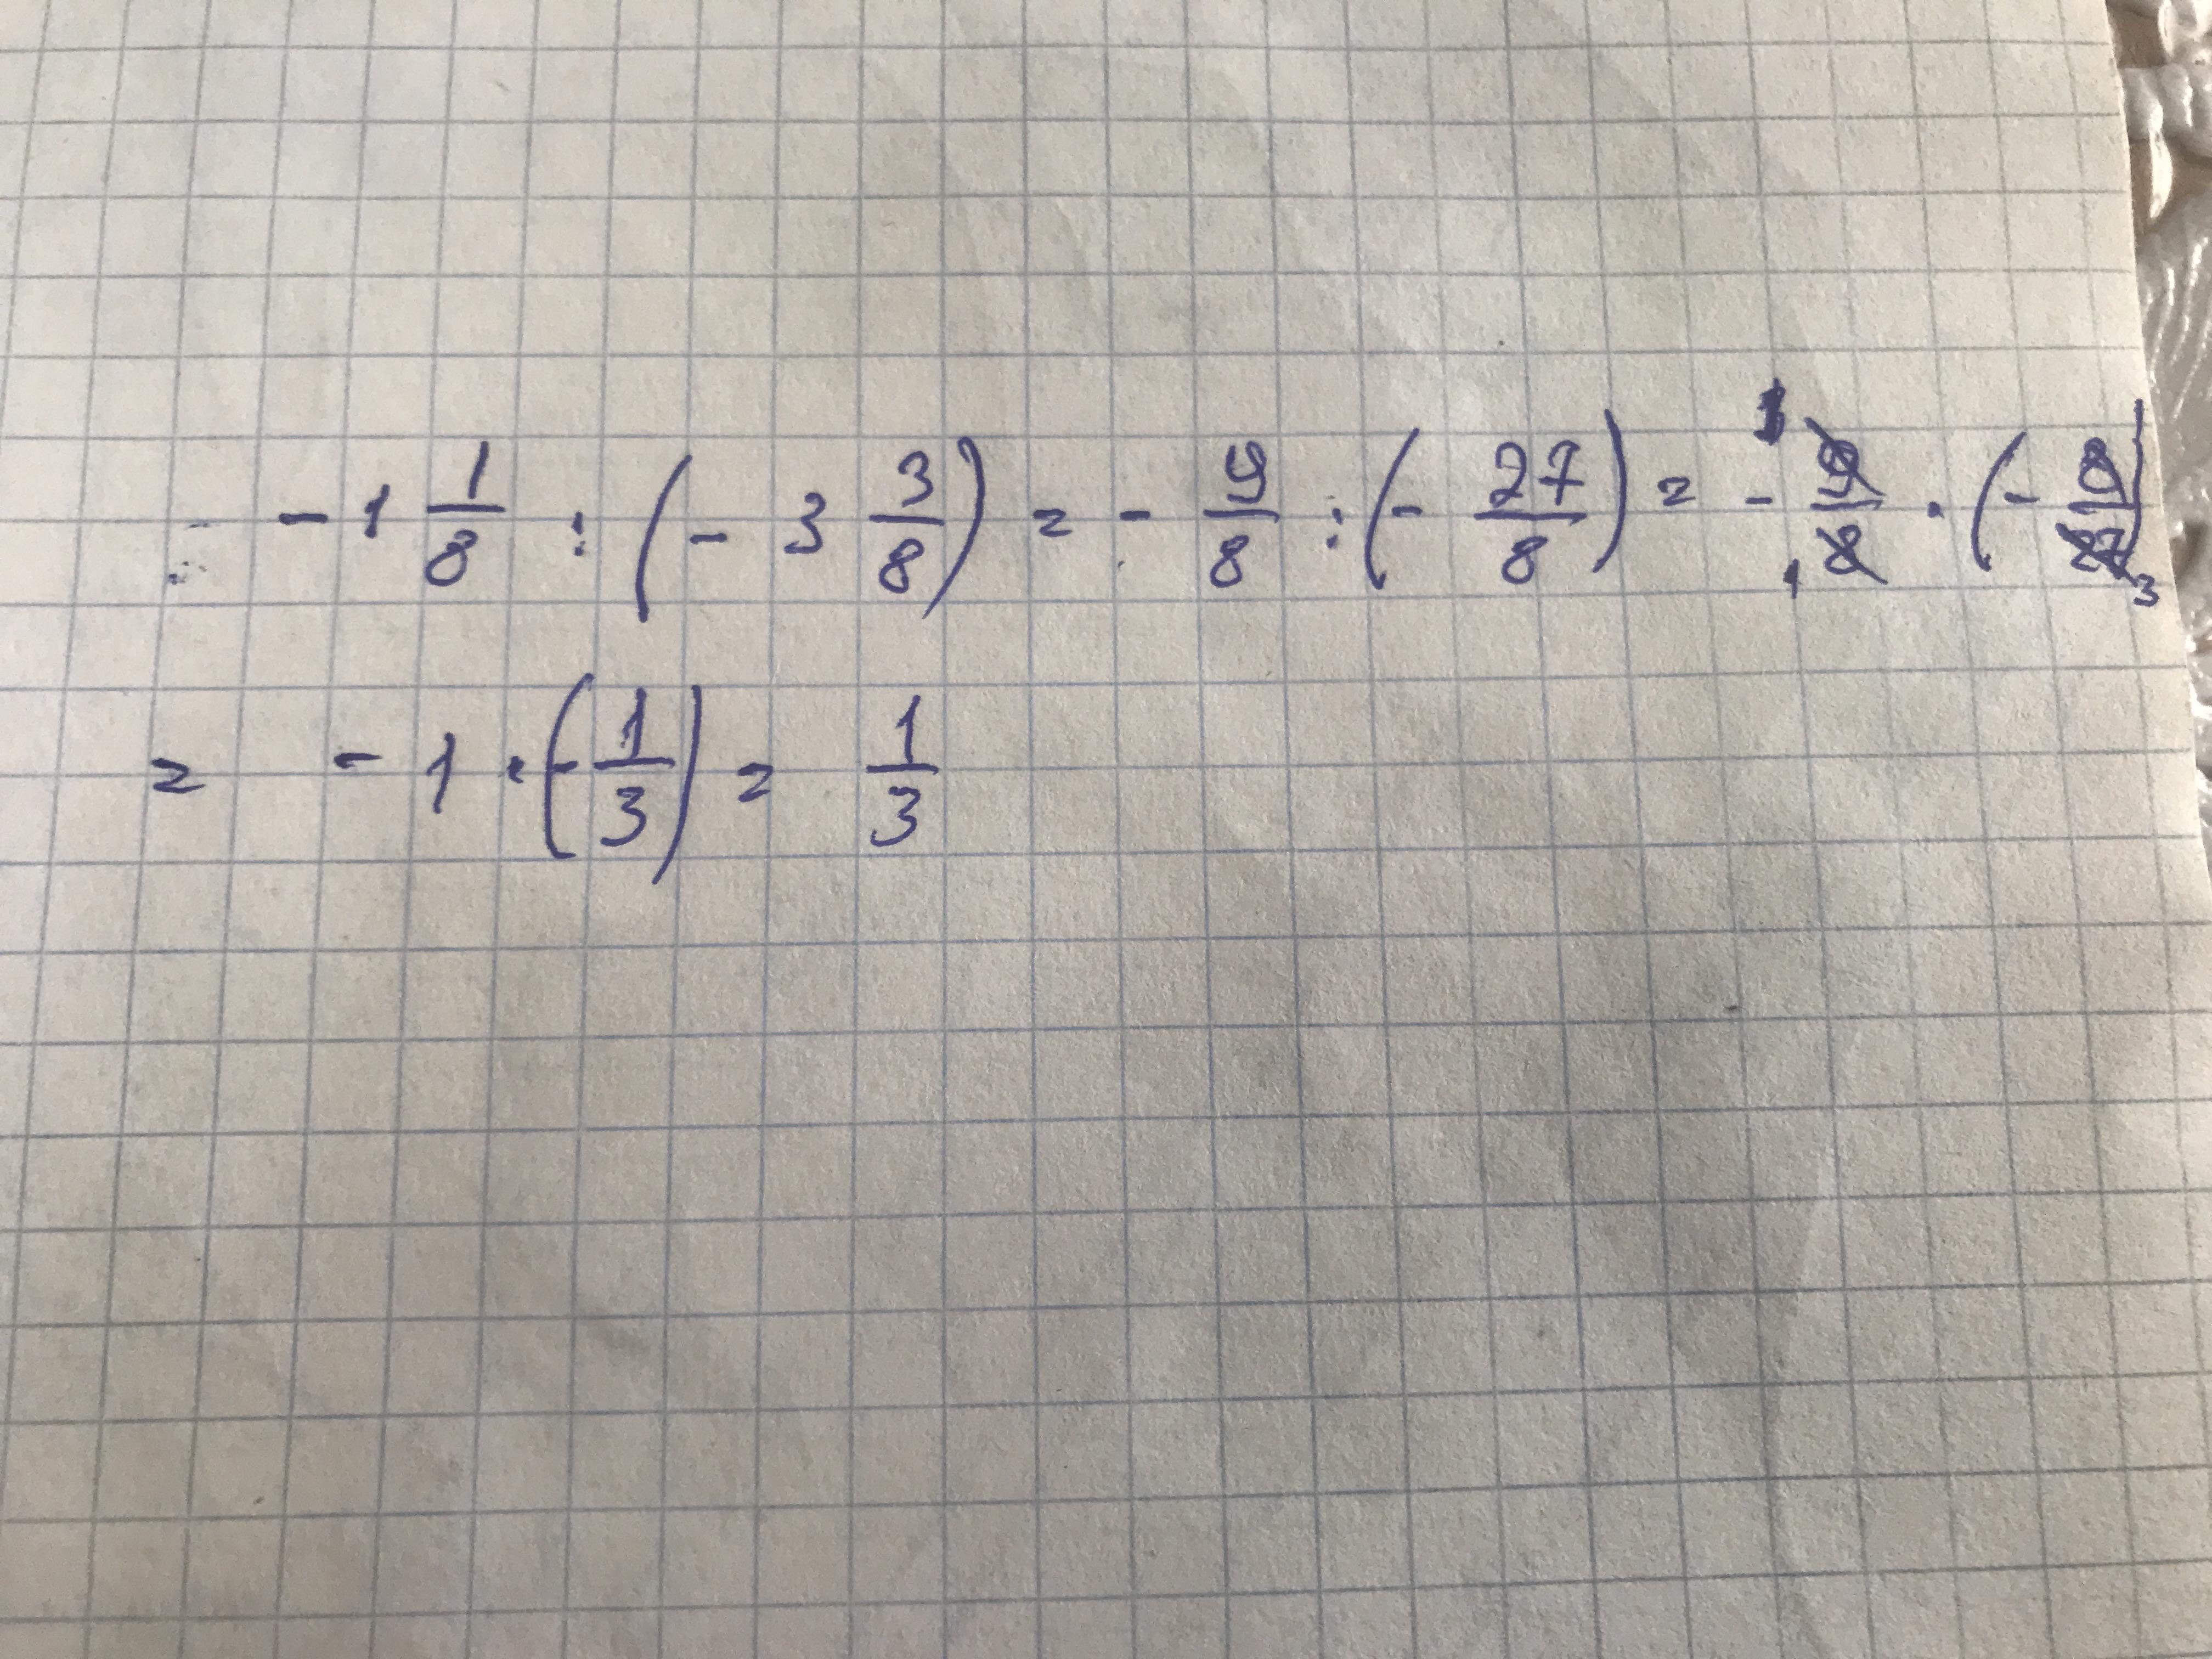 - 1 1/8 : (- 3 3/8) = - 9/8 : (- 27/8) = - 1 9/8 1 · (- 8/27 3)
= - 1 · (- 1/3) = 1/3